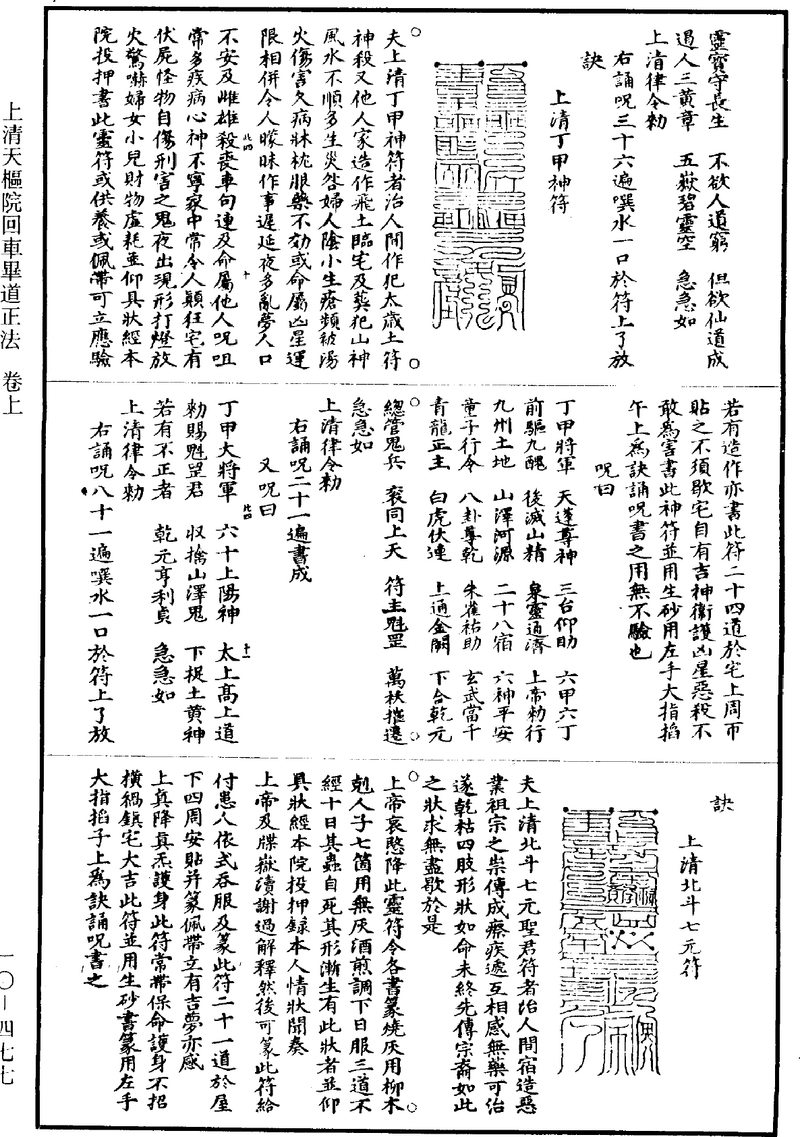 上清天樞院回車畢道正法　卷上
一〇—四七七
靈寶守長生　不欲人道窮　但欲仙道成
過人三黃章　五嶽碧靈空　急急如
上清律令勑
右誦呪三十六遍噀水一口於符上了放
訣
上清丁甲神符
夫上清丁甲神符者治人間作犯太歲土符
神殺又他人家造作飛土臨宅及葬犯山神
風水不順多生災咎婦人陰小生瘡頻被湯
火傷害久病牀枕服藥不効或命屬凶星運
限相併令人矇昧作事遲延夜多亂夢人口
不安及雌雄殺喪車句連及命屬他人呪咀
常多疾病心神不寧家中常令人顛狂宅有
伏屍怪物自傷刑害之鬼夜出現形打燈放
火驚嚇婦女小兒財物虛耗並仰具狀經本
院投押書此靈符或供養或佩帶可立應驗
若有造作亦書此符二十四道於宅上周帀
貼之不須歇宅自有吉神衛護凶星惡殺不
敢為害書此神符並用生砂用左手大指掐
午上為訣誦呪書之用無不驗也
呪曰
丁甲將軍　天蓬尊神　三台仰助　六甲六丁
前驅九醜　後滅山精　衆靈通濟　上帝勑行
九州土地　山澤河源　二十八宿　六神平安
童子行令　八卦尊乾　朱雀祐助　玄武當千
青龍正主　白虎伏連　上通金闕　下合乾元
總管鬼兵　衮同上天　符主魁罡　萬袄摧遷
急急如
上清律令勑
右誦呪二十一遍書成
又呪曰
丁甲大將軍　六十上陽神　太上高上道
勑賜魁罡君　収擒山澤鬼　下捉土黃神
若有不正者　乾元亨利貞　急急如
上清律令勑
右誦呪八十一遍噀水一口於符上了放
訣
上清北斗七元符
夫上清北斗七元聖君符者治人間宿造惡
業祖宗之祟傳成瘵疾遞互相感無藥可治
遂乾枯四肢形狀如命未終先傳宗裔如此
之狀求無盡歇於是
上帝哀愍降此靈符令各書篆燒灰用柳木
剋人子七箇用無灰酒煎調下日服三道不
經十日其蟲自死其形漸生有此狀者並仰
具狀經本院投押錄本人情狀聞奏
上帝及牒嶽瀆謝過解釋然後可篆此符給
付患人依式吞服及篆此符二十一道於屋
下四周安貼并篆佩帶立有吉夢亦感
上真降真炁護身此符常帶保命護身不招
橫禍鎮宅大吉此符並用生砂書篆用左手
大指掐子上為訣誦呪書之